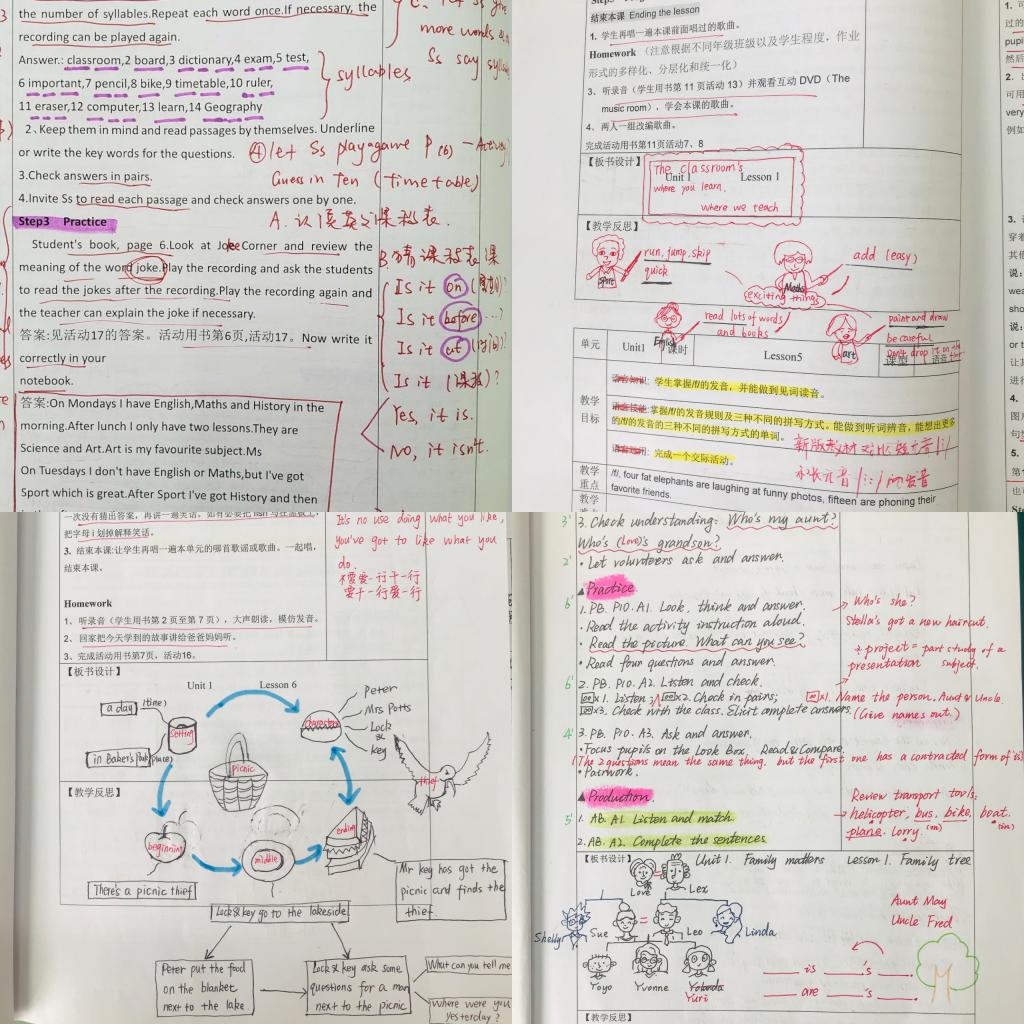 the number of syllables.Repeat each word once.If necessary, the
recording can be played again.
Answer.: classroom,2 board,3 dictionary,4 exam,5 test,
6 important,7 pencil,8 bike,9 timetable,10 ruler,
11 eraser,12 computer,13 learn,14 Geography
syllables
more words
Ss say
2、Keep them in mind and read passages by themselves. Underline
or write the key words for the questions.
④let Ss play a game P(6) — Activity
3.Check answers in pairs.
Guess in Ten (Timetable)
4.Invite Ss to read each passage and check answers one by one.
A. 认读英文课程表.
Step3 Practice
Student's book, page 6.Look at Joke Corner and review the
meaning of the word joke.Play the recording and ask the students
to read the jokes after the recording.Play the recording again and
the teacher can explain the joke if necessary.
答案:见活动17的答案。活动用书第6页,活动17。Now write it
correctly in your
notebook.
B.猜课程表课
Is it on (
Is it before ...?
Is it at (时间)?
Is it (课程)?
Yes, it is.
No, it isn't.
答案:On Mondays I have English,Maths and History in the
morning.After lunch I only have two lessons.They are
Science and Art.Art is my favourite subject.Ms
On Tuesdays I don't have English or Maths,but I've got
Sport which is great.After Sport I've got History and then
结束本课 Ending the lesson
1. 学生再唱一遍本课前面唱过的歌曲。
Homework（注意根据不同年级班级以及学生程度，作业
形式的多样化、分层化和统一化）
3、听录音（学生用书第 11 页活动 13）并观看互动 DVD（The
music room），学会本课的歌曲。
4、两人一组改编歌曲。
完成活动用书第11页活动7、8
【板书设计】
The classroom's
Unit 1 Lesson 1
where you learn,
where we teach
【教学反思】
run, jump, skip
quick
sport
Maths
add (easy)
exciting things
read lots of words
and books
English
art
paint and draw
be careful
Don't drop it on the
单元
Unit1
课时
Lesson5
课型
语音
教学
目标
语言知识: 学生掌握/f/的发音，并能做到见词读音。
语言技能: 掌握/f/的发音规则及三种不同的拼写方式。能做到听词辨音，能想出更多
的/f/的发音的三种不同的拼写方式的单词。
语言运用: 完成一个交际活动。
新版教材对比短元音/i/
和长元音/i:/的发音
教学
重点
/f/, four fat elephants are laughing at funny photos, fifteen are phoning their
favorite friends.
一次没有猜出答案，再讲一遍笑话。如有必要把 fish 写在黑板上,
把字母 i 划掉解释笑话。
3. 结束本课:让学生再唱一遍本单元的哪首歌谣或歌曲。一起唱,
结束本课。
It's no use doing what you like,
you've got to like what you
do.
不要爱一行干一行
要干一行爱一行
Homework
1、听录音（学生用书第 2 页至第 7 页），大声朗读，模仿发音。
2、回家把今天学到的故事讲给爸爸妈妈听。
3、完成活动用书第7页，活动16。
【板书设计】
Unit 1 Lesson 6
a day (time)
in Baker's Park (place)
setting
characters
Peter
Mrs Potts
Lock
&
key
picnic
thief
【教学反思】
beginning
middle
ending
There's a picnic thief
Lock & key go to the lakeside
Mr key has got the
picnic and finds the
thief.
Peter put the food
on the blanket
next to the lake
Lock & key ask some
questions for a man
next to the picnic
What can you tell me
Where were you
yesterday?
3' 3. Check understanding: Who's my aunt?
Who's (Love)'s grandson?
2' • Let volunteers ask and answer.
▲Practice
6' 1. PB. P10. A1. Look, think and answer.
• Read the activity instruction aloud.
• Read the picture. What can you see?
• Read four questions and answer.
Who's she?
Stella's got a new haircut.
* project = part study of a
presentation subject.
6' 2. PB. P10. A2. Listen and check.
x1. Listen; x2. Check in pairs;
x3. Check with the class. Elicit complete answers.
x1. Name the person. Aunt & Uncle
(Give names out.)
4' 3. PB. P10. A3. Ask and answer.
• Focus pupils on the Look Box. Read & Compare.
(The 2 questions mean the same thing, but the first one has a contracted form of 'is')
• Pairwork.
▲Production.
5' 1. AB. A1. Listen and match.
2. AB. A2. Complete the sentences.
Review transport tools:
helicopter, bus, bike, boat.
plane. lorry. (on) (in)
【板书设计】 Unit 1. Family matters Lesson 1. Family tree
Love
Lex
Shelly
Sue
Leo
Linda
Yoyo
Yvonne
Yolanda
Yuri
Aunt May
Uncle Fred
___ is ___'s ___.
___ are ___'s ___.
【教学反思】